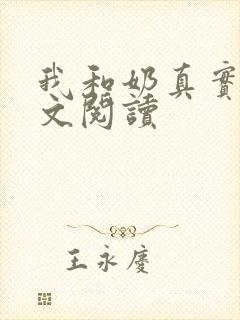 我和奶真實
文閱讀
王永慶